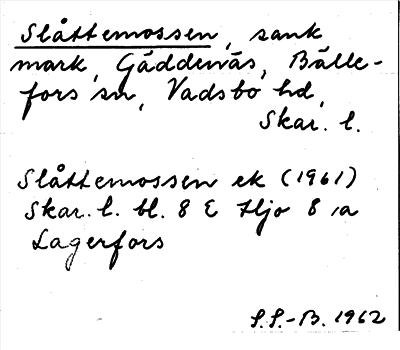 Slåttemossen, sank
mark, Gäddenäs, Bälle-
fors sn, Vadsbo hd,
Skar. l.
Slåttemossen ek (1961)
Skar. l. bl. 8 E Hjo 8 a
Lagerfors
S.S.-B. 1962